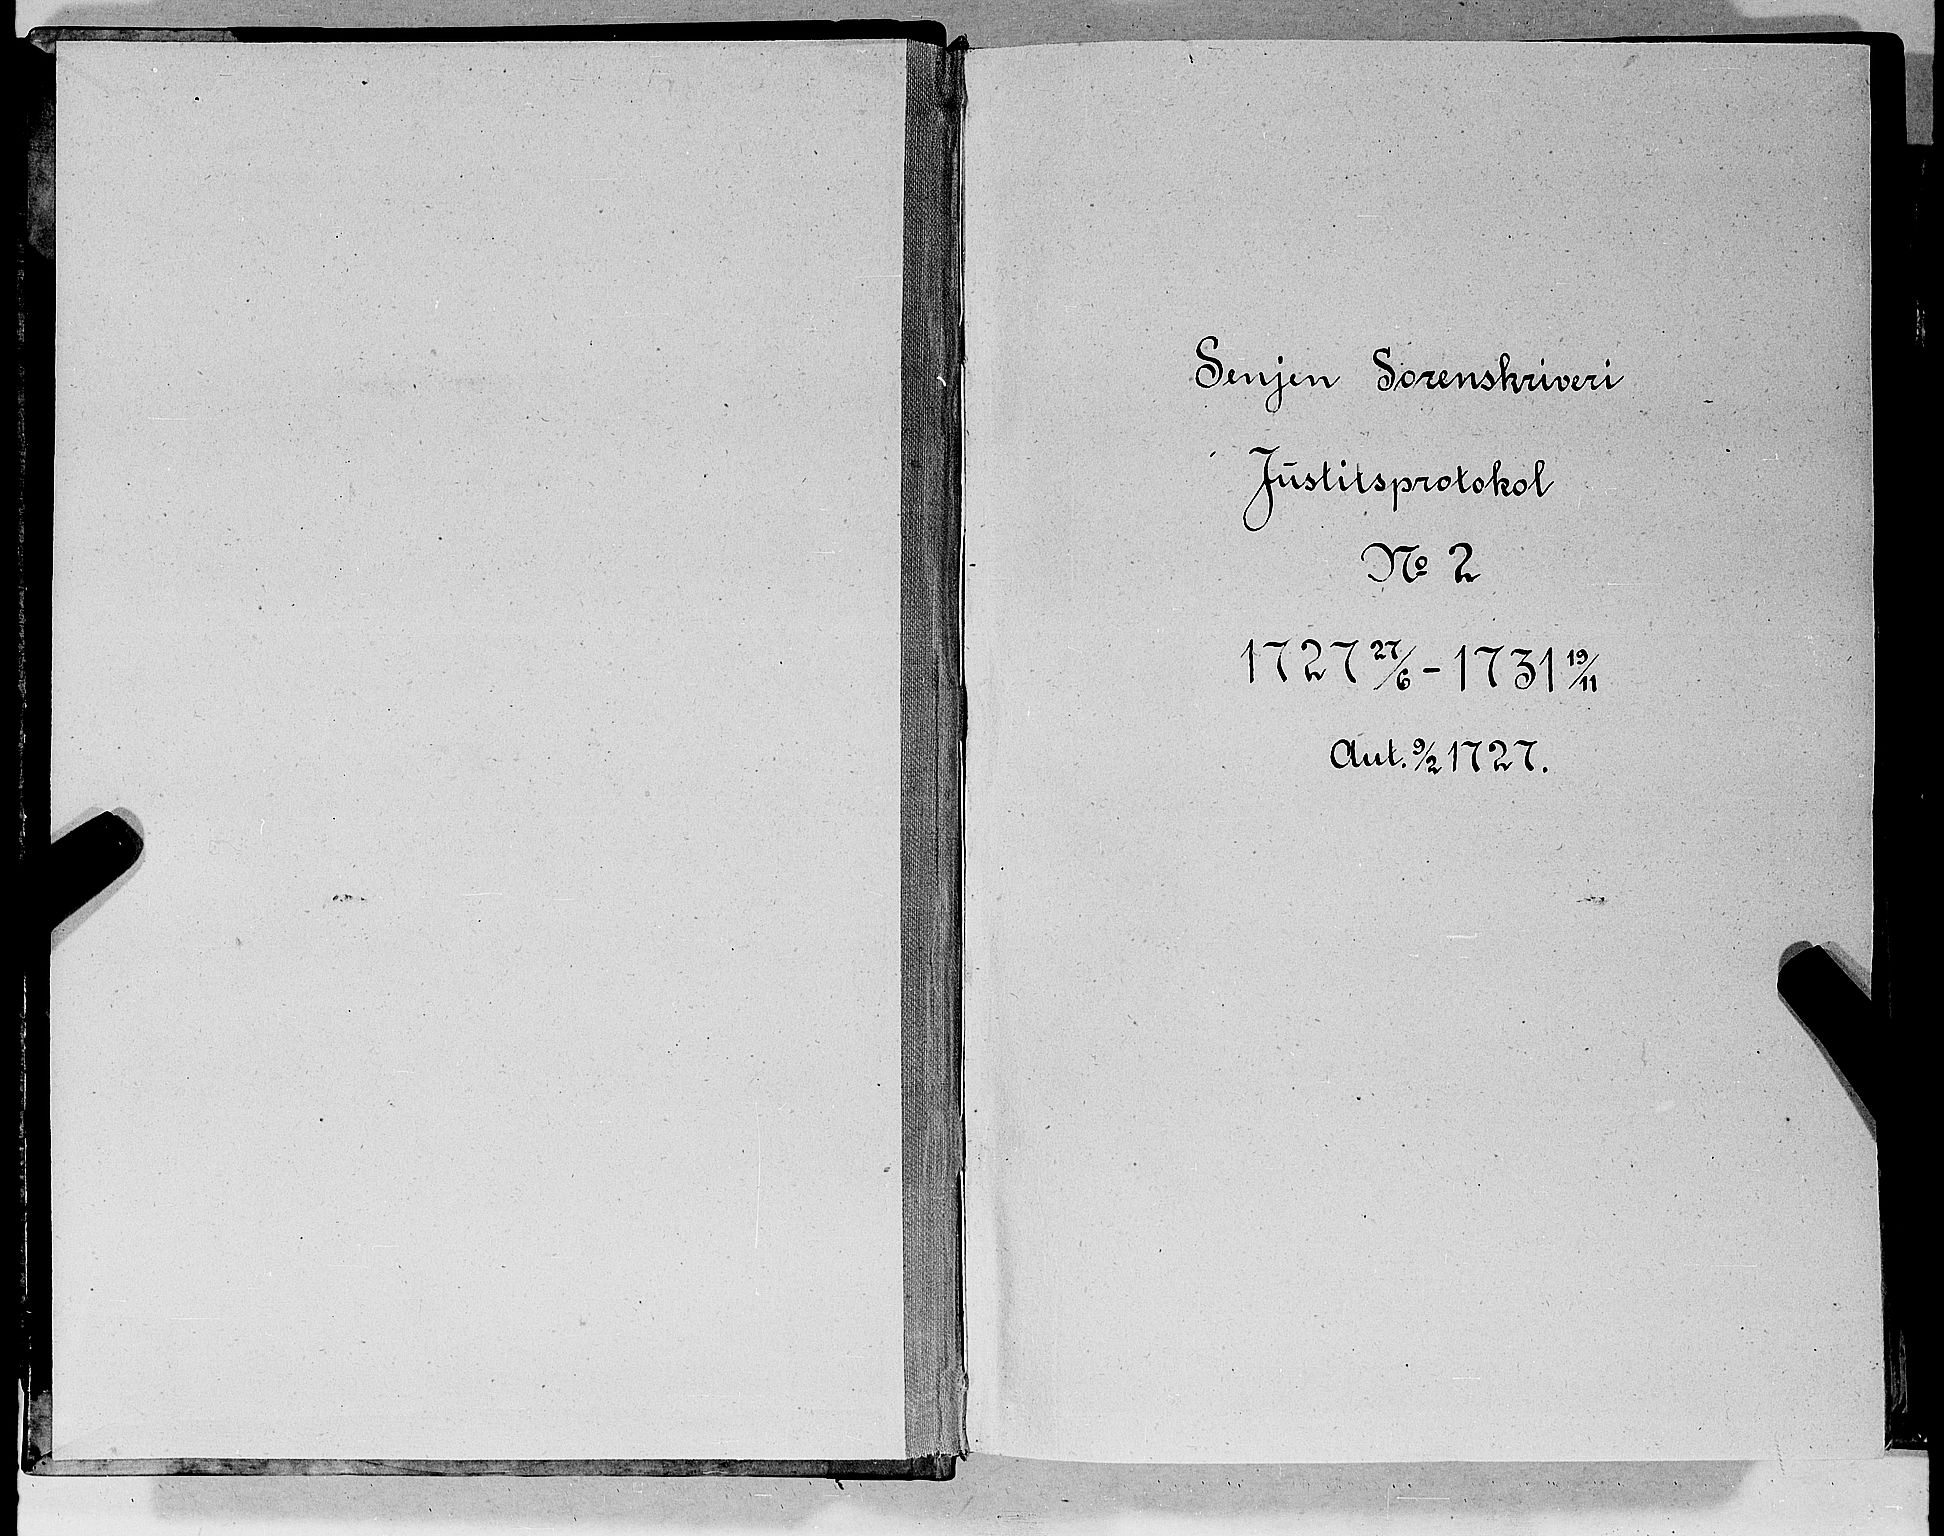 Senjen Sorenskriveri
Justitsprotokol
No 2
1727 27/6 - 1731 19/11
Aut. 9/2 1727.